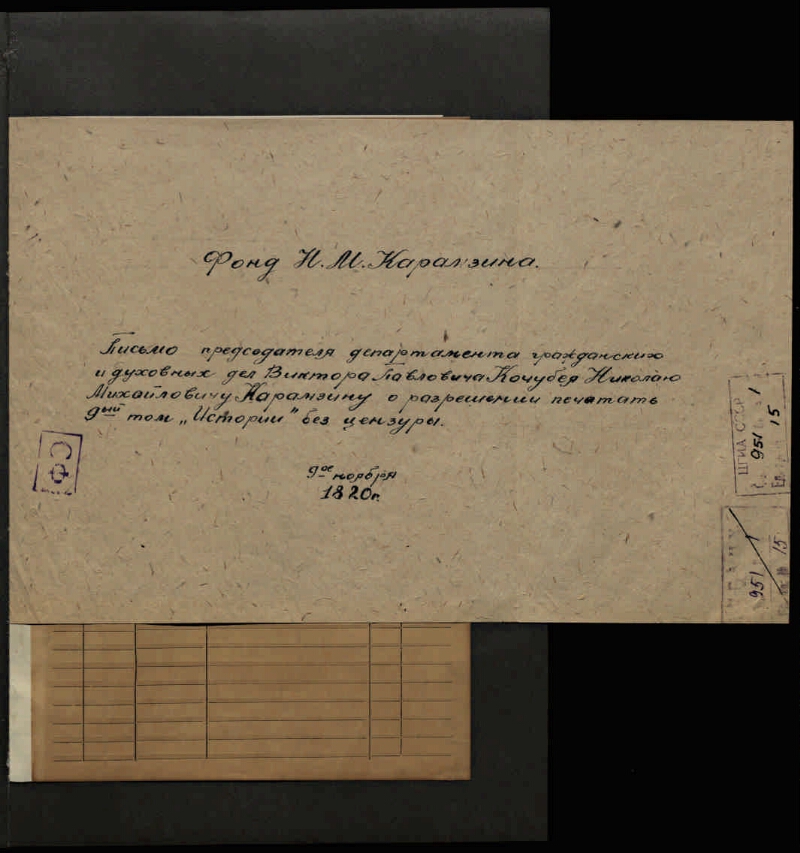 Фонд Н.М. Карамзина.
Письмо председателя департамента гражданских
и духовных дел Виктора Павловича Кочубея Николаю
Михайловичу Карамзину о разрешении печатать
9ый том „Истории" без цензуры.
9ое ноября
1820 г.
СФ
ЦГИА СССР
951 1
15
951 1
15